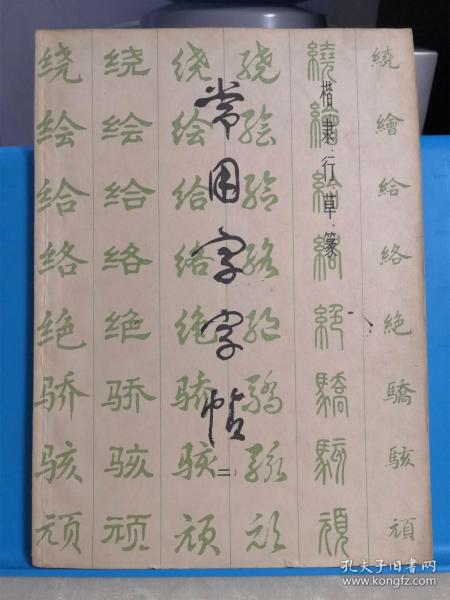 常用字字帖
二
楷·隶·行·草·篆
绕绘给络绝骄骇顽
绕绘给络绝骄骇顽
绕绘给络绝骄骇顽
绕绘给络绝骄骇顽
繞繪給絡絕驕駭頑
繞繪給絡絶驕駭頑
孔夫子旧书网
www.kongfz.com